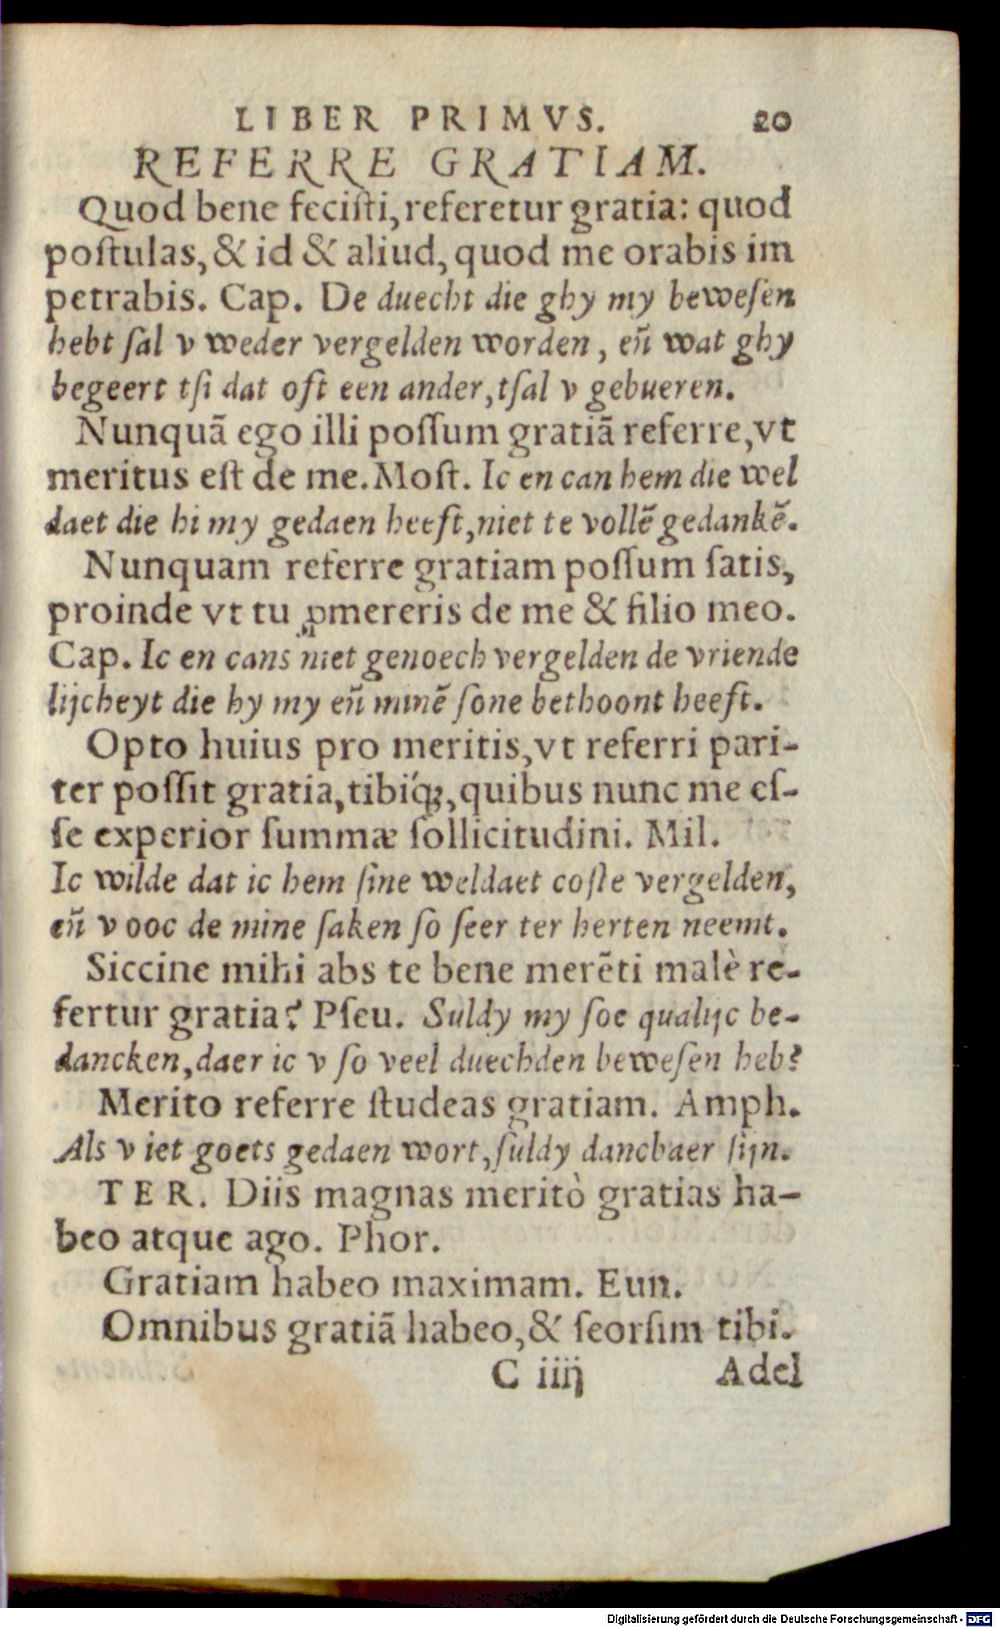 LIBER PRIMVS. 20
REFERRE GRATIAM.
Quod bene feciſti, referetur gratia: quod
poſtulas, & id & aliud, quod me orabis im
petrabis. Cap. De duecht die ghy my beweſen
hebt ſal v weder vergelden worden, en̄ wat ghy
begeert tſi dat oft een ander, tſal v gebueren.
Nunquā ego illi poſſum gratiā referre, vt
meritus eſt de me. Moſt. Ic en can hem die wel
daet die hi my gedaen heeft, niet te vollē gedankē.
Nunquam referre gratiam poſſum ſatis,
proinde vt tu ꝓmereris de me & filio meo.
Cap. Ic en cans niet genoech vergelden de vriende
lijcheyt die hy my en̄ minē ſone bethoont heeft.
Opto huius pro meritis, vt referri pari-
ter poſſit gratia, tibiq́ꝫ, quibus nunc me eſ-
ſe experior ſummæ ſollicitudini. Mil.
Ic wilde dat ic hem ſine weldaet coſte vergelden,
en̄ v ooc de mine ſaken ſo ſeer ter herten neemt.
Siccine mihi abs te bene merēti malè re-
fertur gratia? Pſeu. Suldy my ſoe qualijc be-
dancken, daer ic v ſo veel duechden beweſen heb?
Merito referre ſtudeas gratiam. Amph.
Als v iet goets gedaen wort, ſuldy dancbaer ſijn.
TER. Diis magnas meritò gratias ha-
beo atque ago. Phor.
Gratiam habeo maximam. Eun.
Omnibus gratiā habeo, & ſeorſim tibi.
C iiij Adel
Digitalisierung gefördert durch die Deutsche Forschungsgemeinschaft - DFG